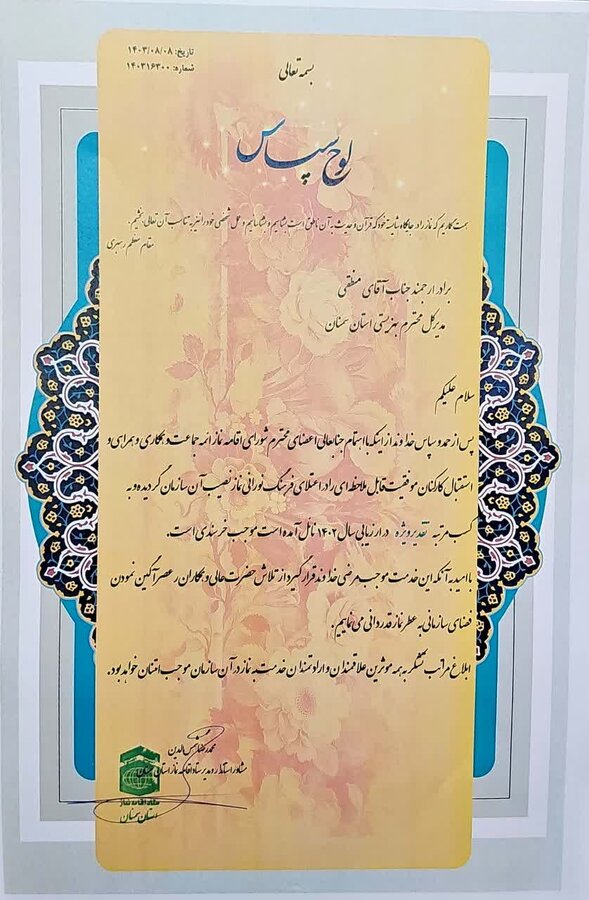 تاریخ: ۱۴۰۳/۰۸/۰۸
شماره: ۱۴۰۳۱۶۳۰۰
بسمه تعالی
لوح سپاس
همت گماریم که نماز را در جایگاه شایسته خود که قرآن و حدیث به آن ناطق است بشناسیم و بشناسانیم و عمل شخصی خود را نیز به تناسب آن تعالی بخشیم.
مقام معظم رهبری
برادر ارجمند جناب آقای منطقی
مدیرکل محترم بهزیستی استان سمنان
سلام علیکم
پس از حمد و سپاس خداوند از اینکه با اهتمام جنابعالی اعضای محترم شورای اقامه نماز ائمه جماعت و همکاری و همراهی و
استقبال کارکنان موفقیت قابل ملاحظه ای را در اعتلای فرهنگ نورانی نماز نصیب آن سازمان گردیده و به
کسب مرتبه تقدیر ویژه در ارزیابی سال ۱۴۰۲ نائل آمده است موجب خرسندی است.
با امید به آنکه این خدمت موجب مرضی خداوند قرار گیرد از تلاش حضرت عالی و همکاران در عطرآگین نمودن
فضای سازمانی به عطر نماز قدردانی می نماییم.
ابلاغ مراتب تشکر به همه موثرین علاقمندان و ارادتمندان خدمت به نماز در آن سازمان موجب امتنان خواهد بود.
شمس الدین
مشاور استاندار و مدیر ستاد اقامه نماز استان سمنان
ستاد اقامه نماز
استان سمنان